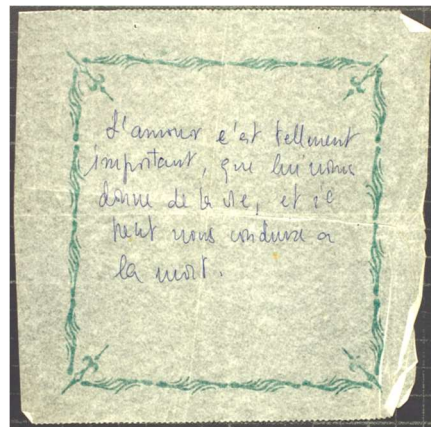 L'amour c'est tellement
important, que lui nous
donne de la vie, et il
peut nous conduire a
la mort.